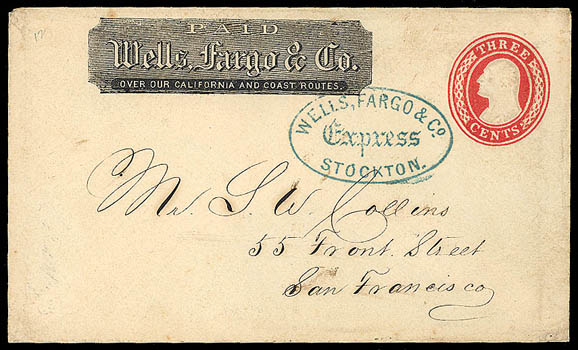 PAID
Wells, Fargo & Co.
OVER OUR CALIFORNIA AND COAST ROUTES.
THREE
CENTS
WELLS, FARGO & Co
Express
STOCKTON.
Mr. S. W. Collins
55 Front Street
San Francisco